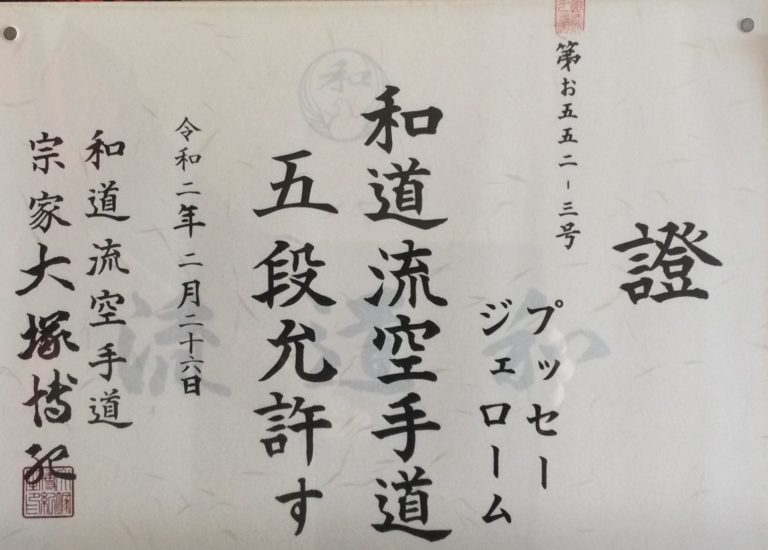 證
第お五五二-三号
プッセー
ジェローム
和道流空手道
五段允許す
令和二年二月二十六日
和道流空手道
宗家大塚博紀
和
和道流